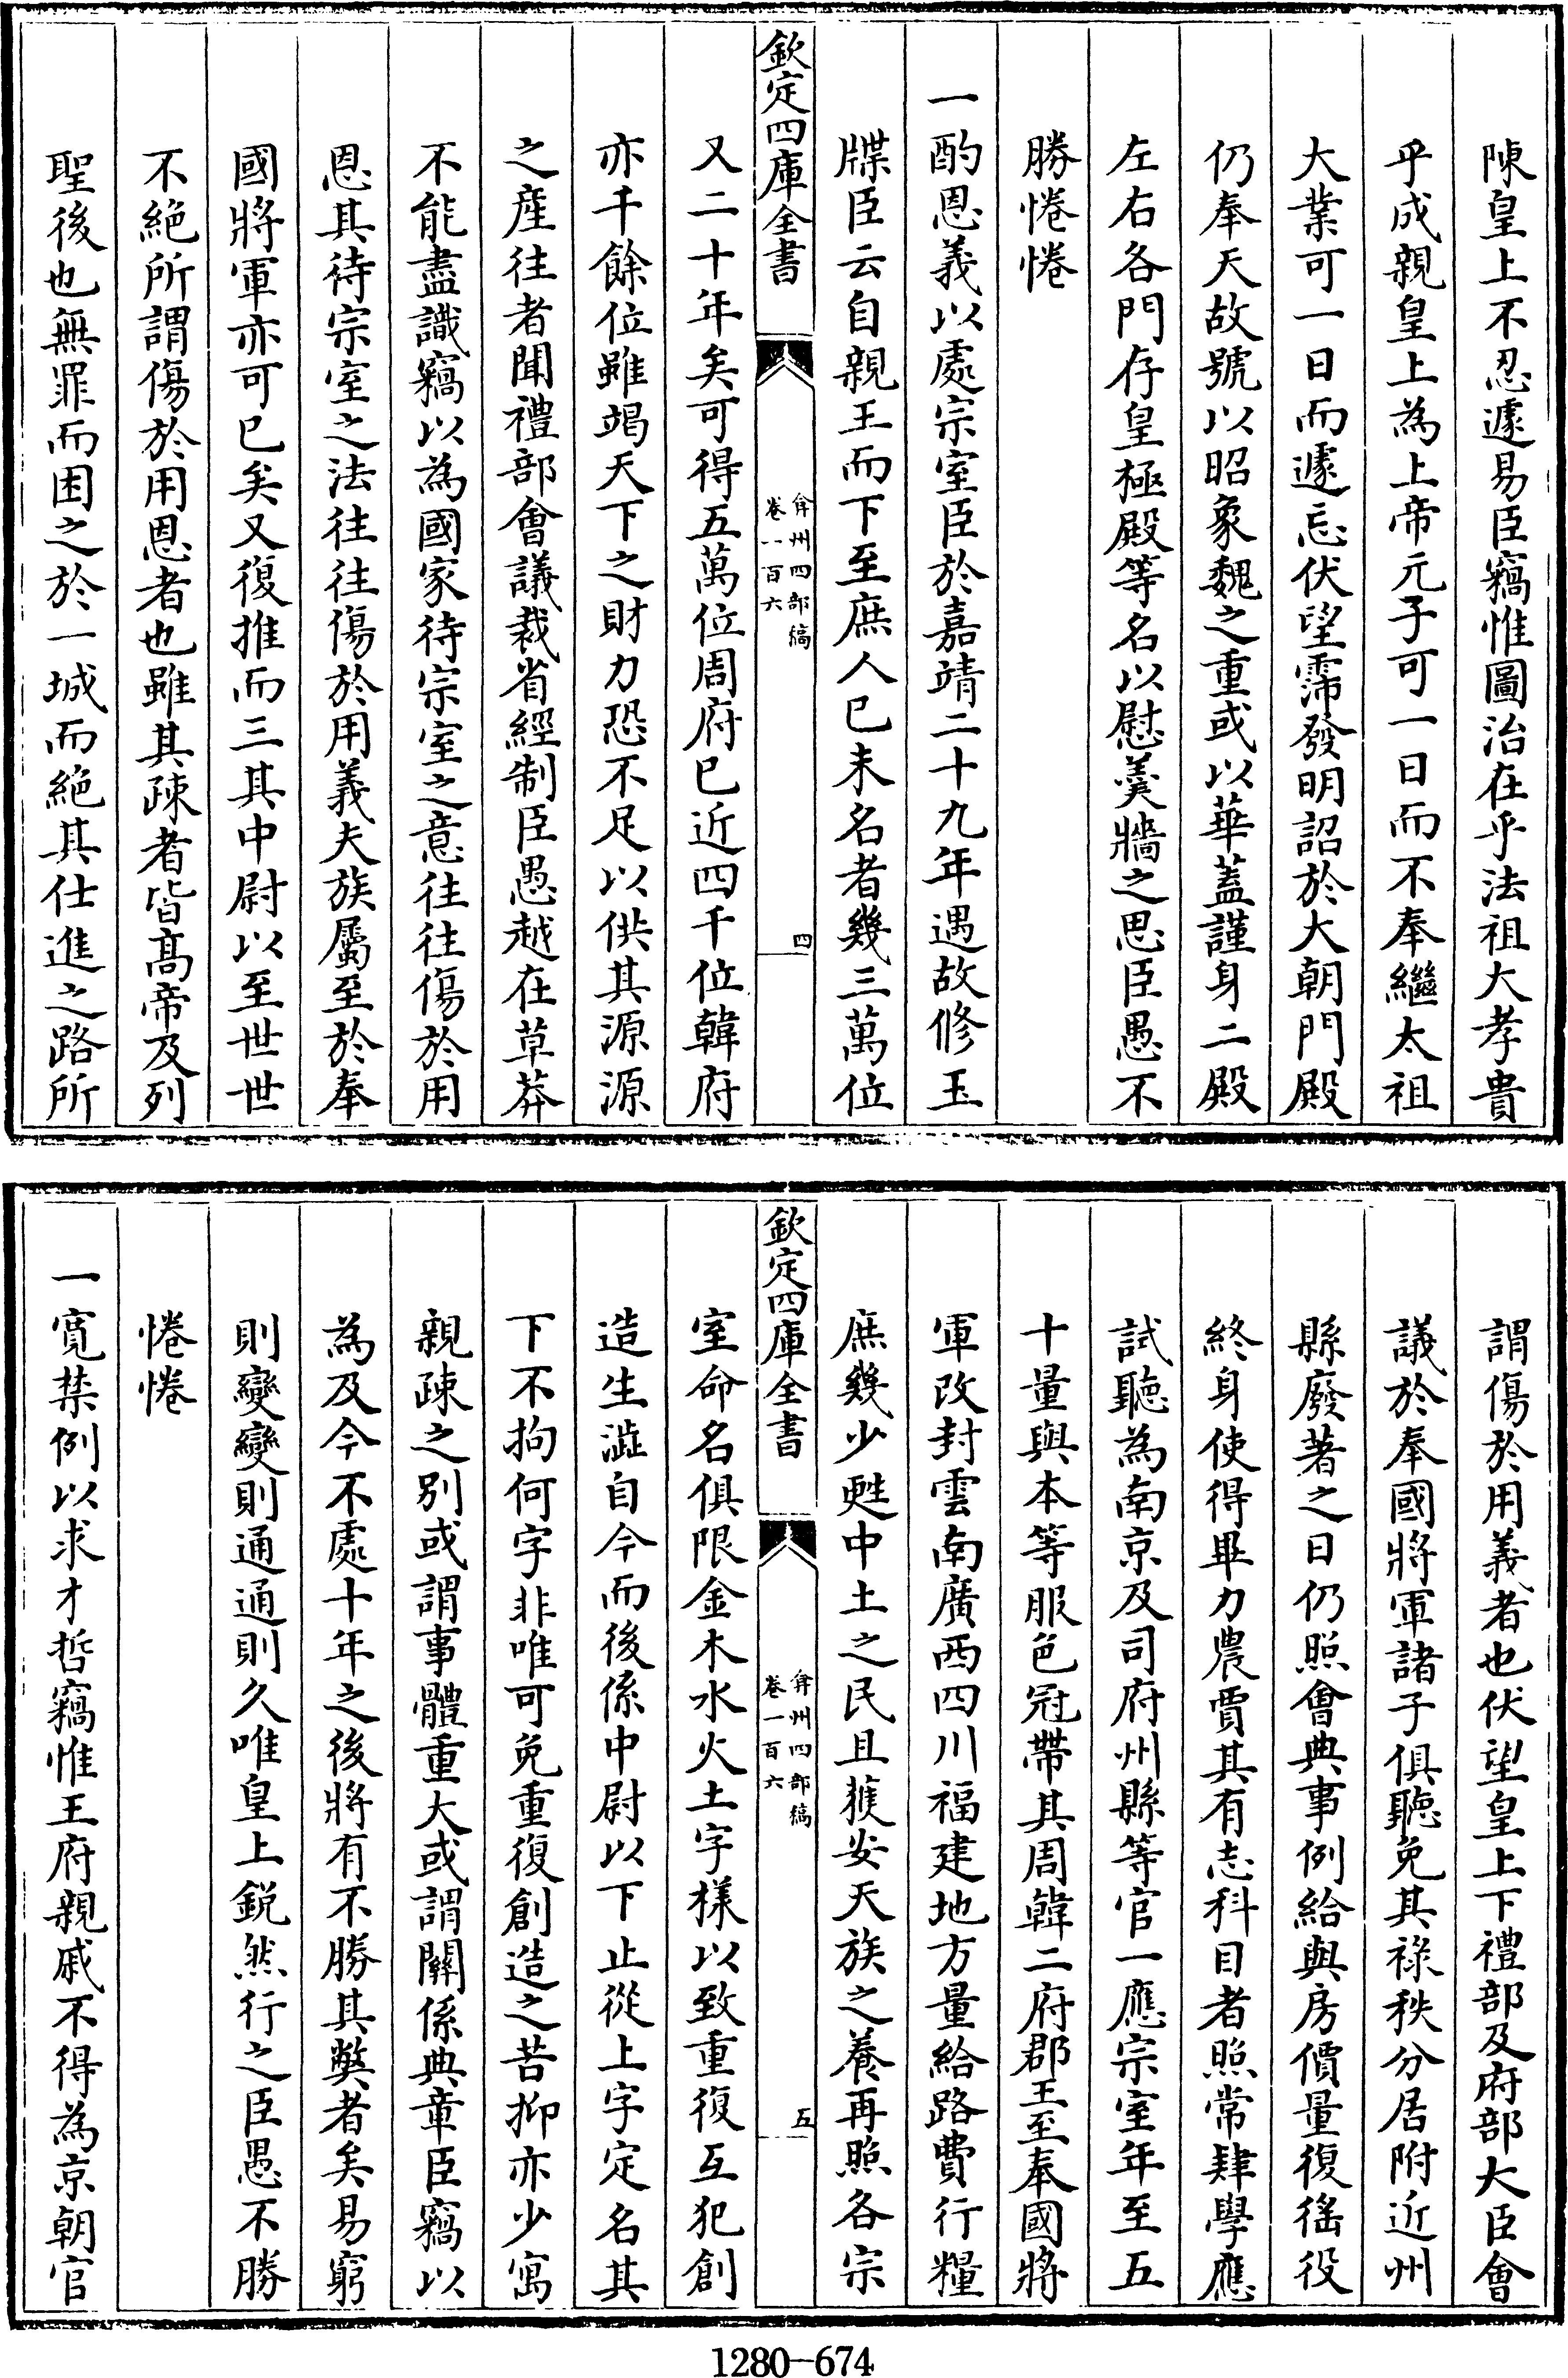 陳皇上不忍遽易臣竊惟圖治在乎法祖大孝貴
乎成親皇上為上帝元子可一日而不奉繼太祖
大業可一日而遽忘伏望霈發明詔於大朝門殿
仍奉天故號以昭象魏之重或以華蓋謹身二殿
左右各門存皇極殿等名以慰羮牆之思臣愚不
勝惓惓
一酌恩義以處宗室臣於嘉靖二十九年遇故修玉
牒臣云自親王而下至庶人已未名者幾三萬位
欽定四庫全書
弇州四部稿
卷一百六
四
又二十年矣可得五萬位周府已近四千位韓府
亦千餘位雖竭天下之財力恐不足以供其源源
之產往者聞禮部會議裁省經制臣愚越在草莽
不能盡識竊以為國家待宗室之意往往傷於用
恩其待宗室之法往往傷於用義夫族屬至於奉
國將軍亦可已矣又復推而三其中尉以至世世
不絕所謂傷於用恩者也雖其疎者皆髙帝及列
聖後也無罪而困之於一城而絕其仕進之路所
謂傷於用義者也伏望皇上下禮部及府部大臣會
議於奉國將軍諸子俱聽免其祿秩分居附近州
縣廢著之日仍照會典事例給與房價量復徭役
終身使得畢力農賈其有志科目者照常肄學應
試聽為南京及司府州縣等官一應宗室年至五
十量與本等服色冠帶其周韓二府郡王至奉國將
軍改封雲南廣西四川福建地方量給路費行糧
庶幾少甦中土之民且獲安天族之養再照各宗
欽定四庫全書
弇州四部稿
卷一百六
五
室命名俱限金木水火土字樣以致重復互犯創
造生澁自今而後係中尉以下止從上字定名其
下不拘何字非唯可免重復創造之苦抑亦少寓
親疎之別或謂事體重大或謂關係典章臣竊以
為及今不處十年之後將有不勝其獘者矣易窮
則變變則通通則久唯皇上銳然行之臣愚不勝
惓惓
一寬禁例以求才哲竊惟王府親戚不得為京朝官
1280-674